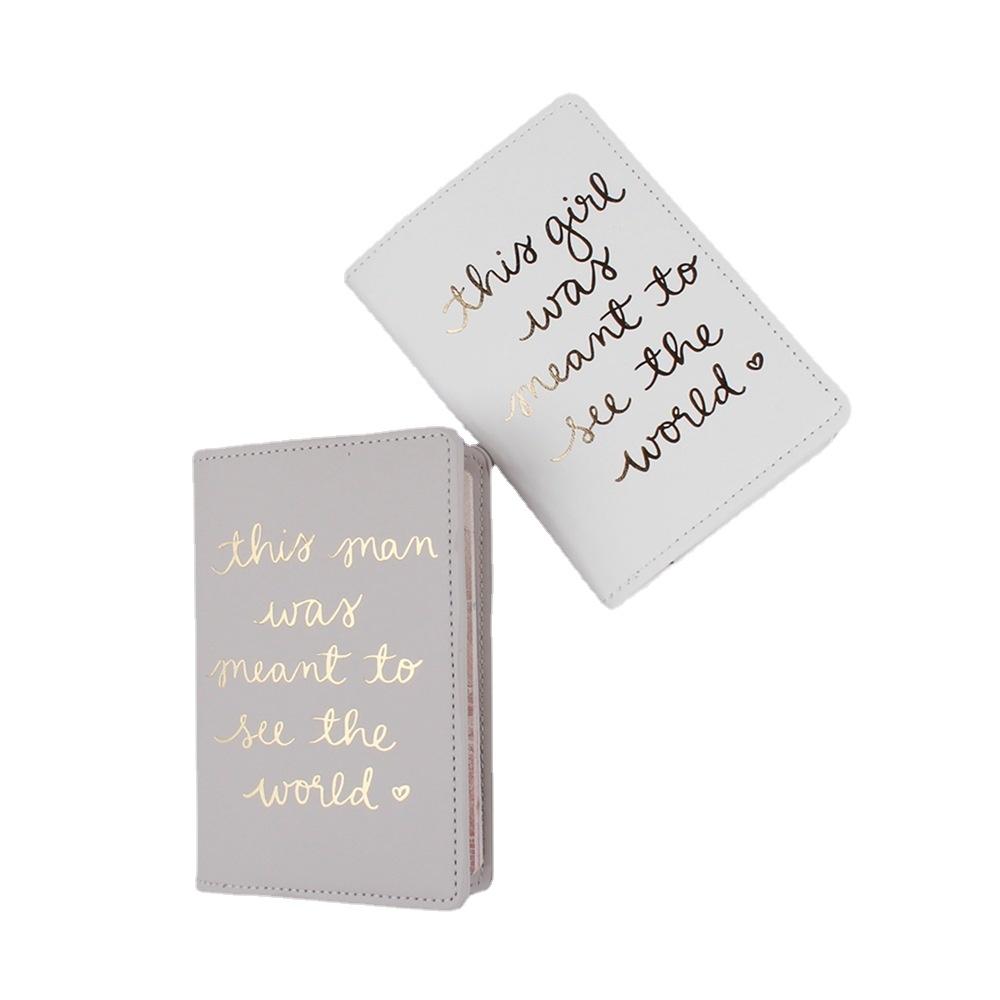 this girl
was
meant to
see the
world
this man
was
meant to
see the
world